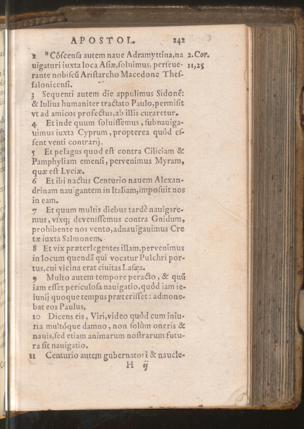 APOSTOL. 242
2 *Cõscensa autem naue Adramyttina, na
2.Cor.
uigaturi iuxta loca Asiæ, soluimus, perseue-
11,25
rante nobiscũ Aristarcho Macedone Thes-
salonicensi.
3 Sequenti autem die appulimus Sidonẽ:
& Iulius humaniter tractato Paulo, permisit
vt ad amicos profectus, ab illis curaretur.
4 Et inde quum soluissemus, subnauiga-
uimus iuxta Cyprum, propterea quòd es-
sent venti contrarij.
5 Et pelagus quod est contra Ciliciam &
Pamphyliam emensi, pervenimus Myram,
quæ est Lyciæ.
6 Et ibi nactus Centurio nauem Alexan-
drinam nauigantem in Italiam, imposuit nos
in eam.
7 Et quum multis diebus tardè nauigare-
mus, vixq; devenissemus contra Gnidum,
prohibente nos vento, adnauigauimus Cre
tæ iuxta Salmonem.
8 Et vix præterlegentes illam, pervenimus
in locum quendã qui vocatur Pulchri por-
tus, cui vicina erat ciuitas Lasæa.
9 Multo autem tempore peracto, & quũ
iam esset periculosa nauigatio, quòd iam ie-
iunij quoque tempus præterisset: admone-
bat eos Paulus,
10 Dicens eis, Viri, video quòd cum iniu-
ria multóque damno, non solùm oneris &
nauis, sed etiam animarum nostrarum futu-
ra sit nauigatio.
11 Centurio autem gubernatori & naucle-
H ij